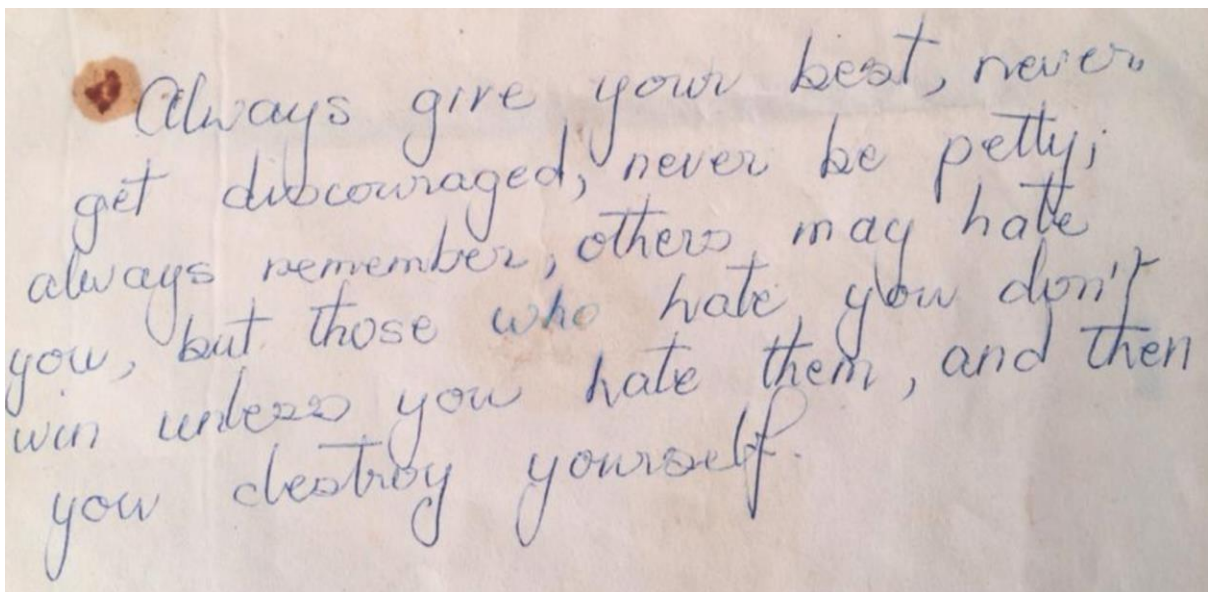 Always give your best, never
get discouraged, never be petty;
always remember, others may hate
you, but those who hate you don't
win unless you hate them, and then
you destroy yourself.